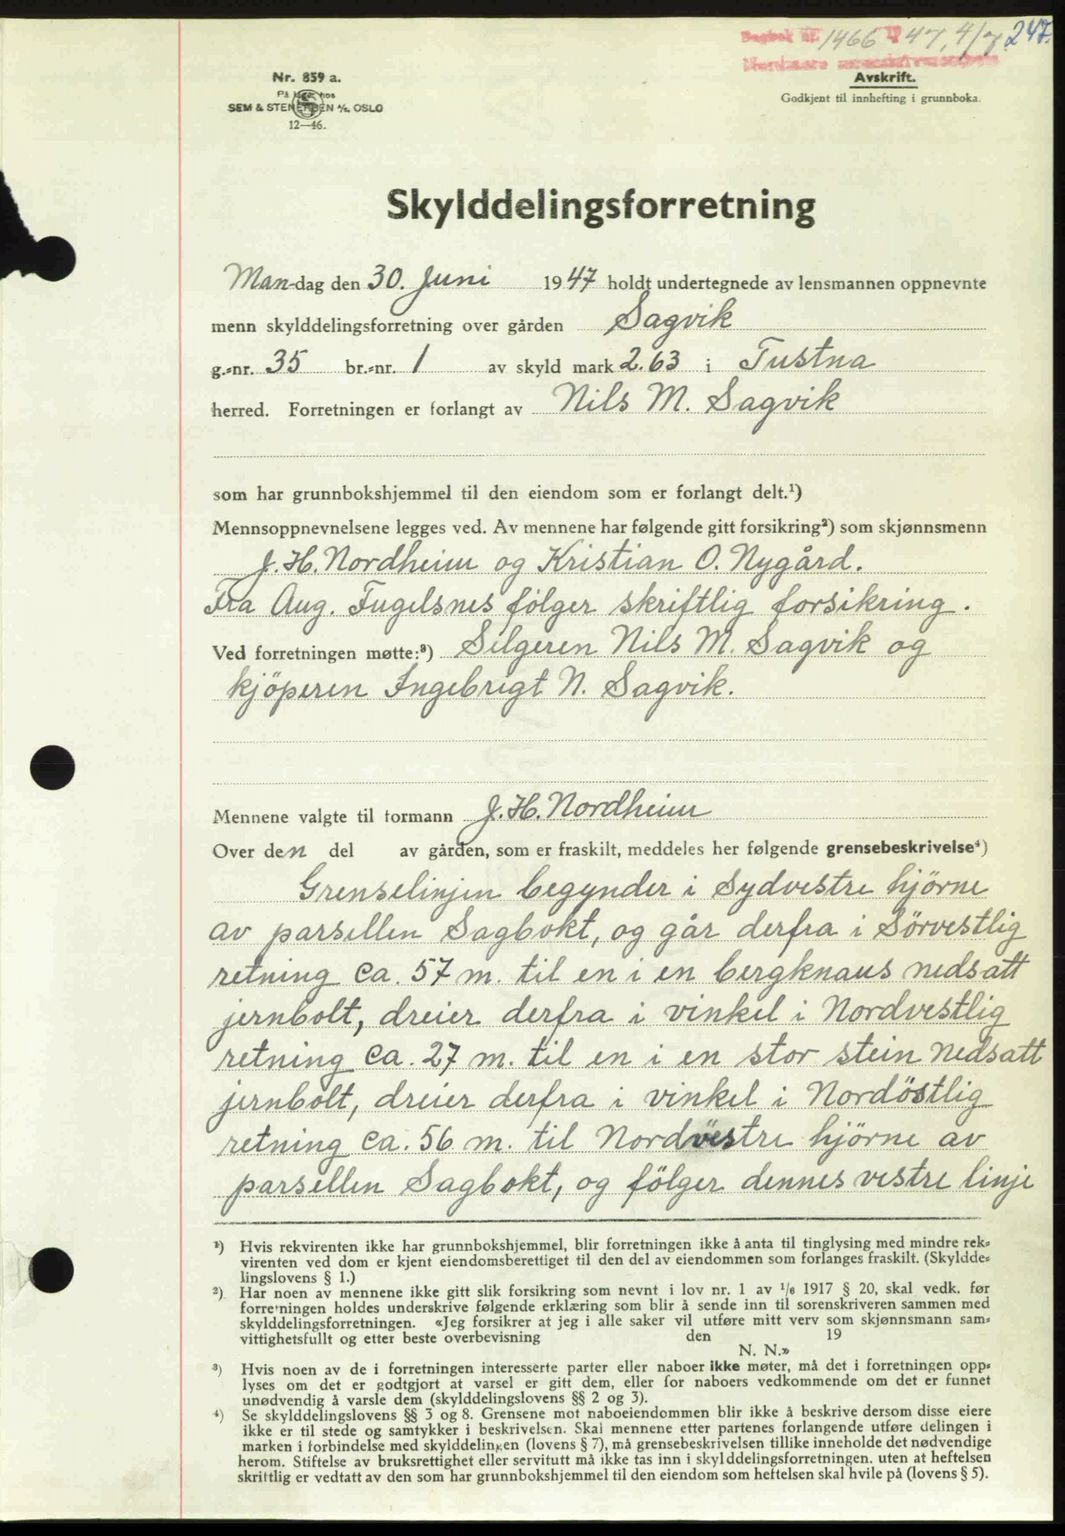 Dagbok nr. 1466 1947, 4/7 247.
Nordmøre sorenskriverembete
Nr. 859 a.
På lager hos
SEM & STENERSEN A/S, OSLO
12—46.
Avskrift.
Godkjent til innhefting i grunnboka.
Skylddelingsforretning
Mandag den 30. Juni 1947 holdt undertegnede av lensmannen oppnevnte
menn skylddelingsforretning over gården Sagvik
g.-nr. 35 br.-nr. 1 av skyld mark 2.63 i Tustna
herred. Forretningen er forlangt av Nils M. Sagvik
som har grunnbokshjemmel til den eiendom som er forlangt delt.¹)
Mennsoppnevnelsene legges ved. Av mennene har følgende gitt forsikring²) som skjønnsmenn
J. H. Nordheim og Kristian O. Nygård.
Fra Aug. Fugelsnes følger skriftlig forsikring.
Ved forretningen møtte:³) Selgeren Nils M. Sagvik og
kjöperen Ingebrigt N. Sagvik.
Mennene valgte til formann J. H. Nordheim
Over den del av gården, som er fraskilt, meddeles her følgende grensebeskrivelse⁴)
Grenselinjen begynder i Sydvestre hjörne
av parsellen Sagbokt, og går derfra i Sörvestlig
retning ca. 57 m. til en i en bergknaus nedsatt
jernbolt, dreier derfra i vinkel i Nordvestlig
retning ca. 27 m. til en i en stor stein nedsatt
jernbolt, dreier derfra i vinkel i Nordöstlig
retning ca. 56 m. til Nordvestre hjörne av
parsellen Sagbokt, og fölger dennes vestre linje
¹) Hvis rekvirenten ikke har grunnbokshjemmel, blir forretningen ikke å anta til tinglysing med mindre rek-
virenten ved dom er kjent eiendomsberettiget til den del av eiendommen som forlanges fraskilt. (Skyldde-
lingslovens § 1.)
²) Har noen av mennene ikke gitt slik forsikring som nevnt i lov nr. 1 av 1/6 1917 § 20, skal vedk. før
forretningen holdes underskrive følgende erklæring som blir å sende inn til sorenskriveren sammen med
skylddelingsforretningen. «Jeg forsikrer at jeg i alle saker vil utføre mitt verv som skjønnsmann sam-
vittighetsfullt og etter beste overbevisning den 19
N. N.»
³) Hvis noen av de i forretningen interesserte parter eller naboer ikke møter, må det i forretningen opp-
lyses om det er godtgjort at varsel er gitt dem, eller for naboers vedkommende om det er funnet
unødvendig å varsle dem (skylddelingslovens §§ 2 og 3).
⁴) Se skylddelingslovens §§ 3 og 8. Grensene mot naboeiendommen blir ikke å beskrive dersom disse eiere
ikke er til stede og samtykker i beskrivelsen. Skal mennene etter partenes forlangende utføre delingen i
marken i forbindelse med skylddelingen (lovens § 7), må grensebeskrivelsen tillike inneholde det nødvendige
herom. Stiftelse av bruksrettighet eller servitutt må ikke tas inn i skylddelingsforretningen. uten at heftelsen
skriftlig er vedtatt av den som har grunnbokshjemmel til den eiendom som heftelsen skal hvile på (lovens § 5).